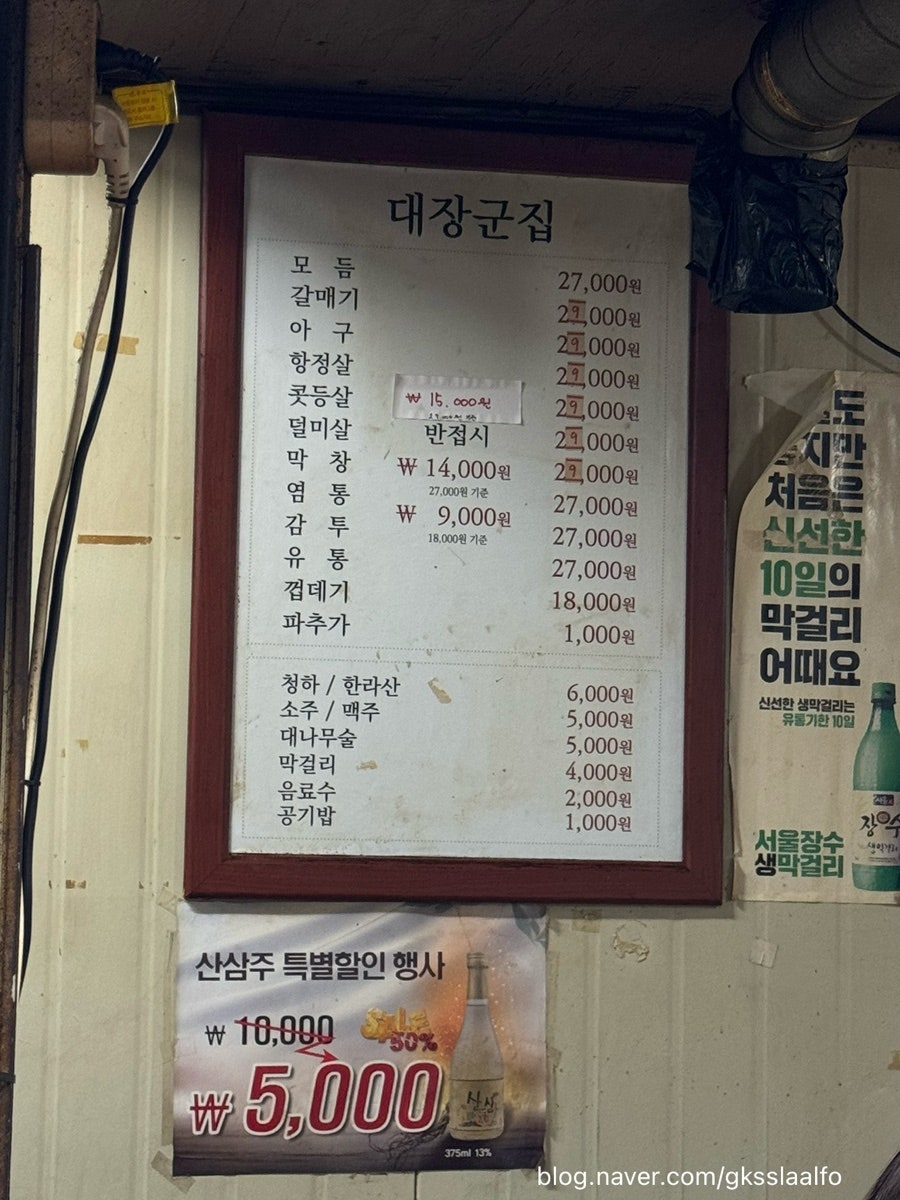 대장군집
모 듬 27,000원
갈매기 29,000원
아 구 29,000원
항정살 29,000원
콧등살 29,000원
덜미살 29,000원
막 창 29,000원
염 통 27,000원
감 투 27,000원
유 통 27,000원
껍데기 18,000원
파추가 1,000원
₩ 15,000원
반접시
₩ 14,000원
27,000원 기준
₩ 9,000원
18,000원 기준
청하 / 한라산 6,000원
소주 / 맥주 5,000원
대나무술 5,000원
막걸리 4,000원
음료수 2,000원
공기밥 1,000원
도
지만
처음은
신선한
10일의
막걸리
어때요
신선한 생막걸리는
유통기한 10일
장수
생막걸리
서울장수
생막걸리
산삼주 특별할인 행사
₩ 10,000
SALE
50%
₩ 5,000
산삼
375ml 13%
blog.naver.com/gksslaalfo